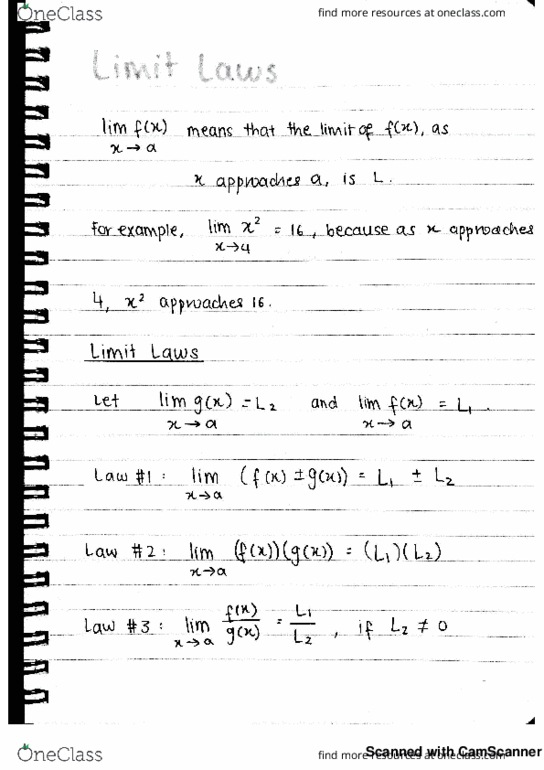 OneClass find more resources at oneclass.com
Limit Laws
lim f(x) means that the limit of f(x), as
x → a
x approaches a, is L.
For example, lim x² = 16, because as x approaches
x→4
4, x² approaches 16.
Limit Laws
Let lim g(x) = L₂ and lim f(x) = L₁.
x → a x → a
Law #1: lim (f(x) ± g(x)) = L₁ ± L₂
x→a
Law #2: lim (f(x))(g(x)) = (L₁)(L₂)
x→a
Law #3: lim f(x)/g(x) = L₁/L₂, if L₂ ≠ 0
x→a
OneClass find more resources at oneclass.com
Scanned with CamScanner